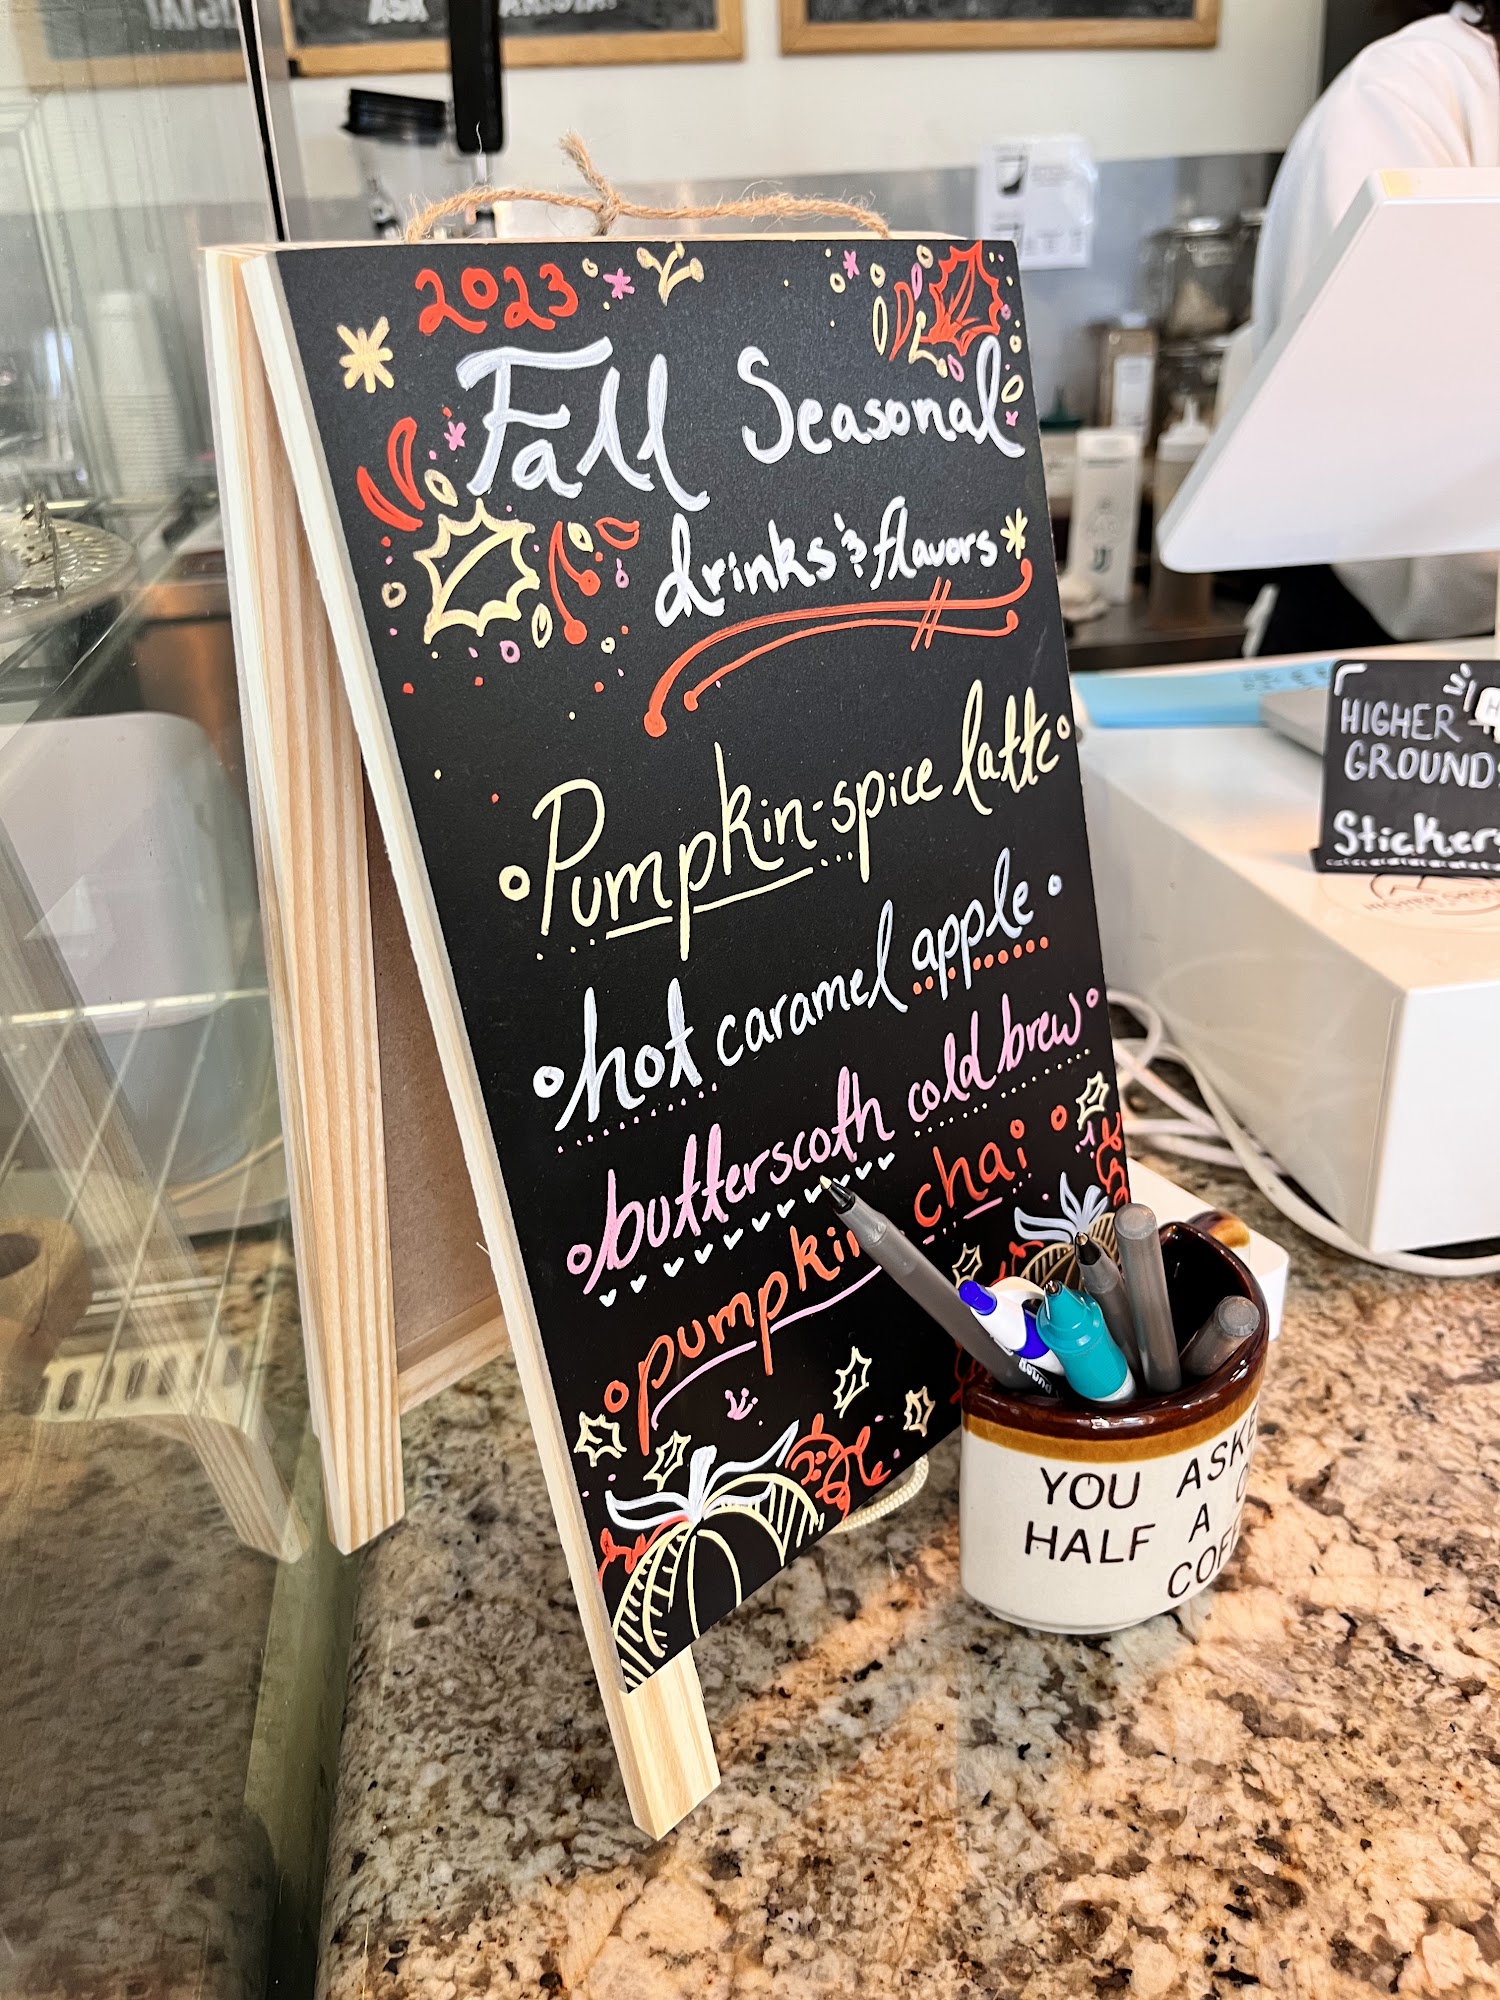 ASK
2023
Fall Seasonal
drinks & flavors
Pumpkin-spice latte
hot caramel apple
butterscoth cold brew
pumpkin chai
HIGHER
GROUND
Stickers
YOU ASKE
HALF A